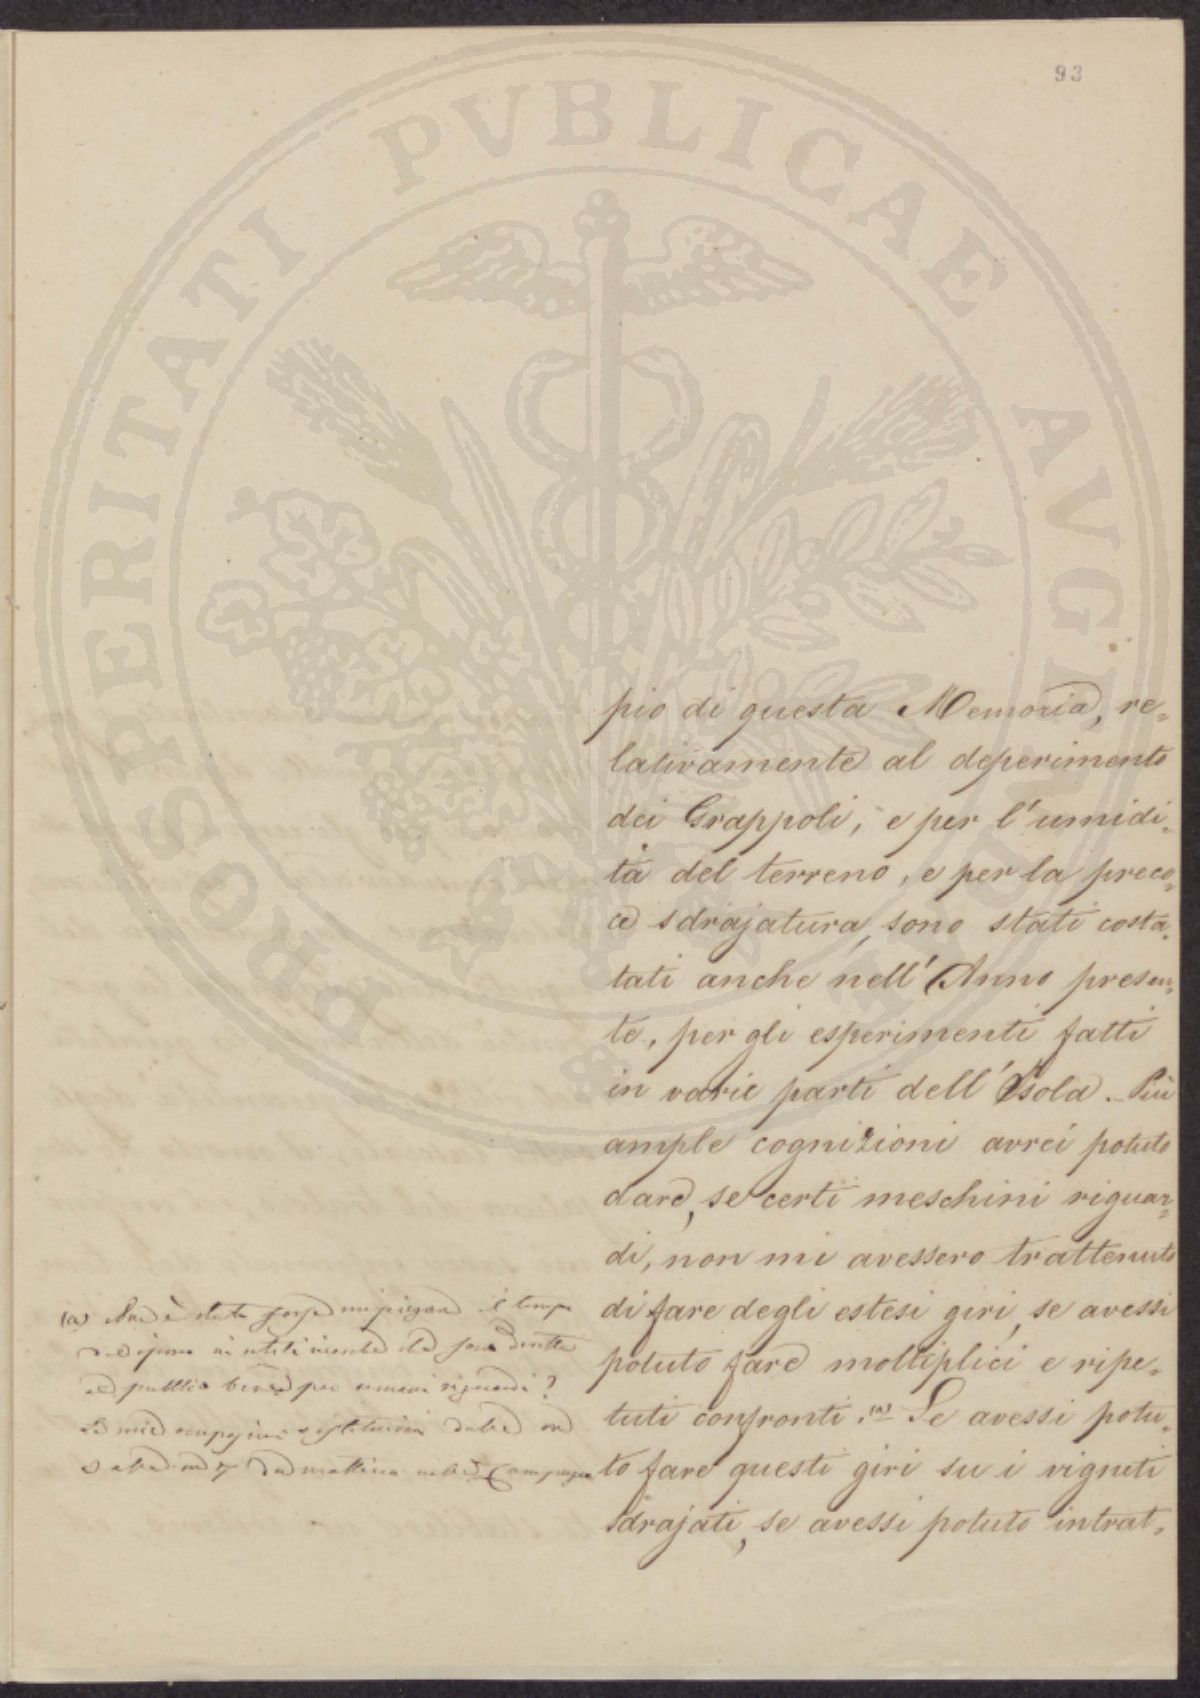 93
PROSPERITATI PVBLICAE AVGENDAE
pio di questa Memoria, re=
lativamente al deperimento
dei Grappoli, e per l'umidi=
tà del terreno, e per la preco=
ce sdrajatura, sono stati costa=
tati anche nell'Anno presen=
te, per gli esperimenti fatti
in varie parti dell'Isola. Più
ample cognizioni avrei potuto
dare, se certi meschini riguar=
di, non mi avessero trattenuto
di fare degli estesi giri, se avessi
potuto fare moltiplici e ripe=
tuti confronti. (a) Se avessi potu=
to fare questi giri su i vigneti
sdrajati, se avessi potuto intrat=
(a) è stato forse il tempo
ad pubblico bene per umani riguardi?
Le mie dalle ore
alle ore mattina nelle Campagne